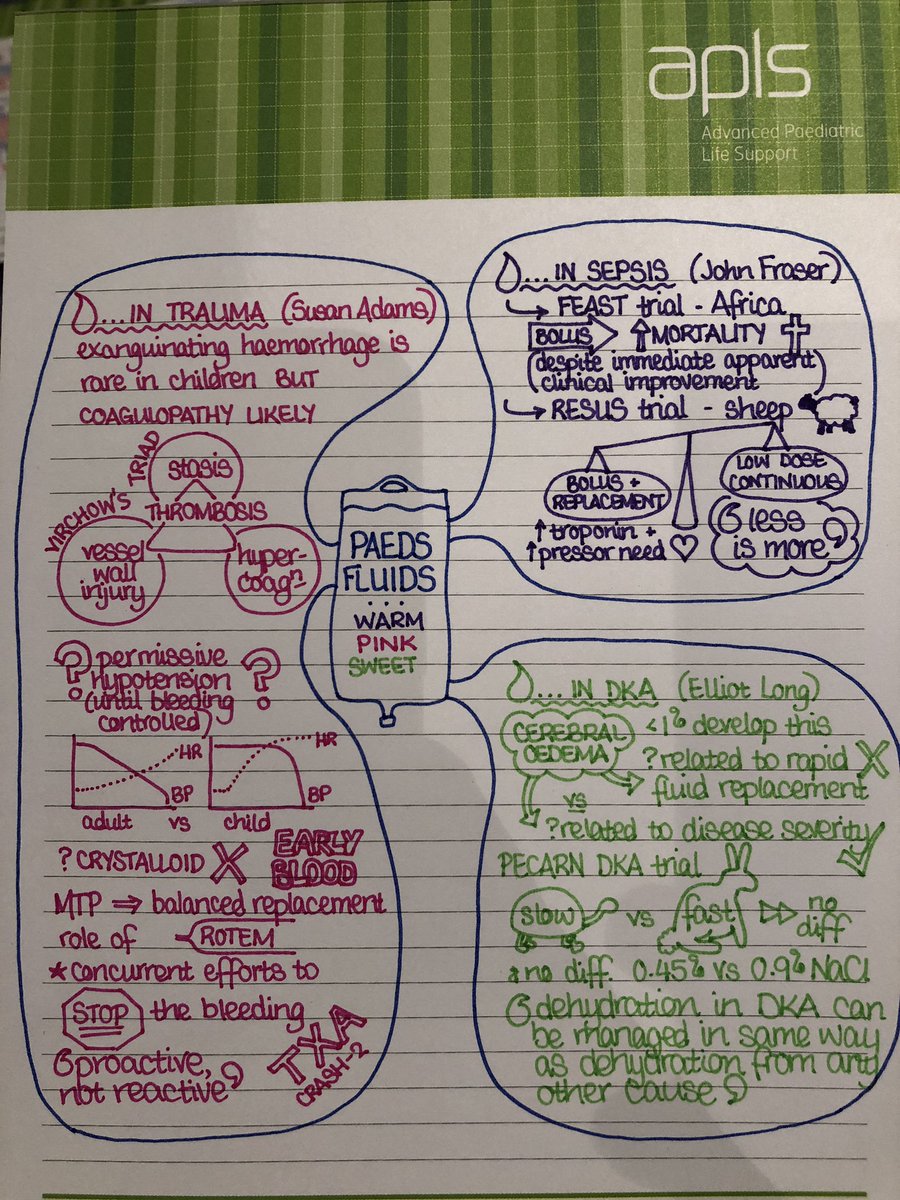 apls
Advanced Paediatric
Life Support
... IN TRAUMA (Susan Adams)
exanguinating haemorrhage is
rare in children BUT
COAGULOPATHY LIKELY
VIRCHOW'S TRIAD
stasis
THROMBOSIS
vessel
wall
injury
hyper-
coagⁿ
? permissive ?
hypotension
(until bleeding
controlled)
HR
BP
adult
vs
HR
BP
child
? CRYSTALLOID X
EARLY
BLOOD
MTP ⇒ balanced replacement
role of ROTEM
*concurrent efforts to
STOP the bleeding
"proactive,
not reactive"
TXA
CRASH-2
PAEDS
FLUIDS
...
WARM
PINK
SWEET
... IN SEPSIS (John Fraser)
↳ FEAST trial - Africa
BOLUS ↑ MORTALITY
(despite immediate apparent
clinical improvement)
↳ RESUS trial - sheep
BOLUS +
REPLACEMENT
LOW DOSE
CONTINUOUS
↑ troponin +
↑ pressor need ♡
"less
is more"
... IN DKA (Elliot Long)
CEREBRAL
OEDEMA
<1% develop this
? related to rapid X
fluid replacement
vs
? related to disease severity ✓
PECARN DKA trial
slow vs fast ▷▷ no
diff
& no diff. 0.45% vs 0.9% NaCl
"dehydration in DKA can
be managed in same way
as dehydration from any
other cause"